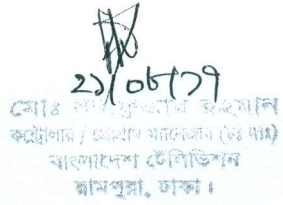 ২১/০৮/১৭
মোঃ রহমান
কন্ট্রোলার / প্রোগ্রাম ম্যানেজার (চঃ দাঃ)
বাংলাদেশ টেলিভিশন
রামপুরা, ঢাকা।